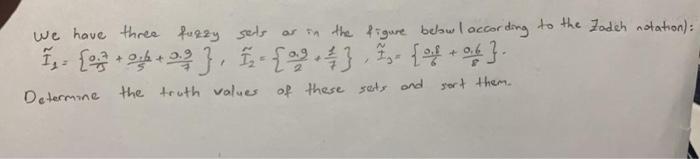 We have three fuzzy sets as in the figure below (according to the Zadeh notation):
Ĩ₁ = {0.7/5 + 0.6/5 + 0.9/7}, Ĩ₂ = {0.9/2 + 1/7}, Ĩ₃ = {0.8/6 + 0.6/8}.
Determine the truth values of these sets and sort them.